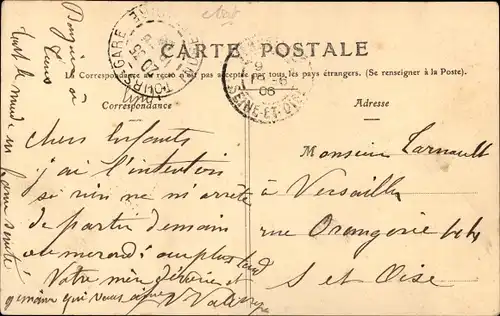 CARTE POSTALE
La Correspondance au recto n'est pas acceptée par tous les pays étrangers. (Se renseigner à la Poste.)
Correspondance
Adresse
Chers Enfants
j'ai l'intention
si rien ne m'arrête
de partir demain
ou mercredi au plus tard
Votre mère
qui vous aime
Bonjour à
tous
Tout le monde
bonne santé
Monsieur Larnault
à Versailles
rue Orangerie
S et Oise
GARE
TOURS
SEINE-ET-OISE